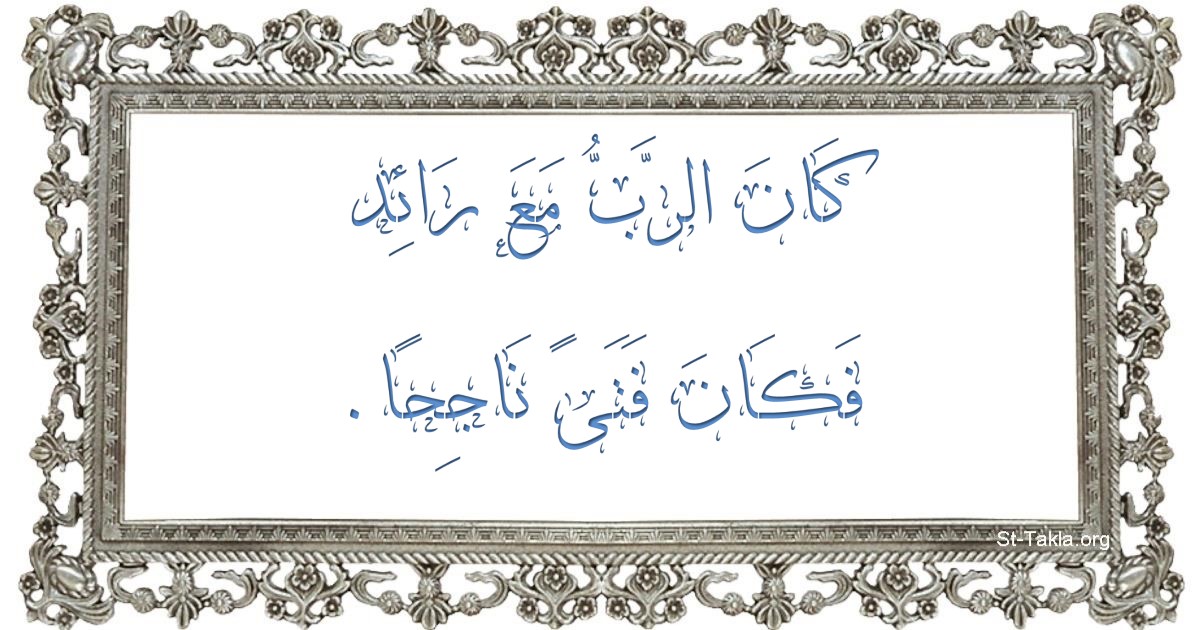 كَانَ الرَّبُّ مَعَ رَائِد
فَكَانَ فَتَىً نَاجِحًا .
St-Takla.org